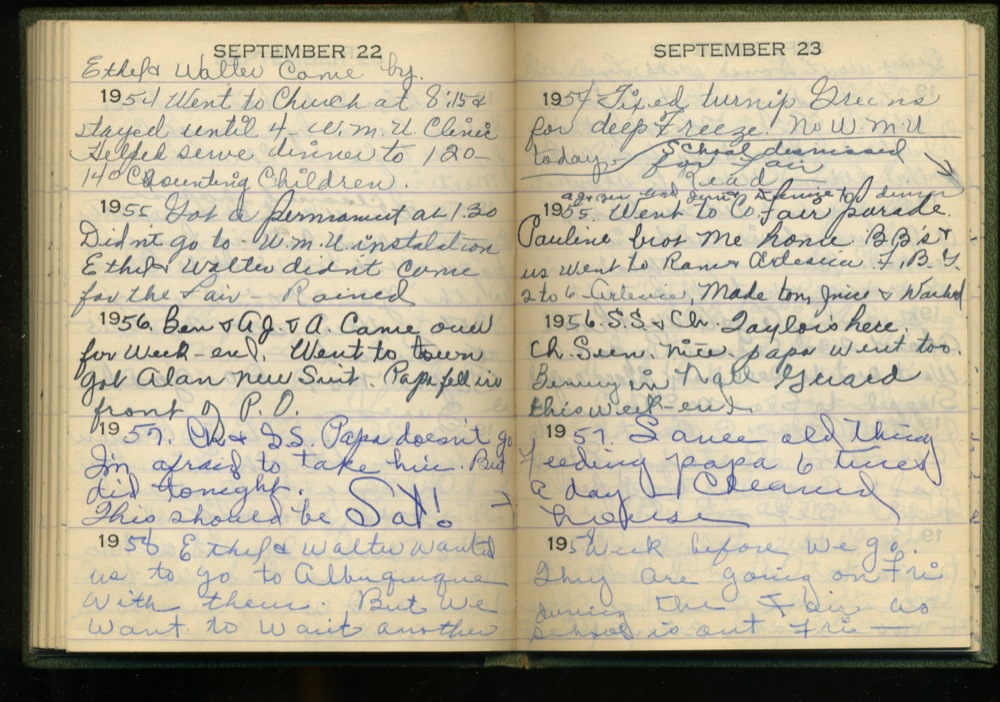 SEPTEMBER 22
Ethel & Walter Came by.
1954 Went to Church at 8:15 &
stayed until 4 - W.M.U. Clinic
Helped serve dinner to 120-
140 Counting Children.
1955 Got a permanent at 1:30
Didn't go to - W.M.U. instalation
Ethel & Walter didn't come
for the Fair - Rained
1956. Ben & A.J. & A. Came over
for Week-end. Went to town
got Alan new Suit. Papa fell in
front of P.O.
1957. Ch & S.S. Papa doesn't go
I'm afraid to take him. But
did tonight.
This should be Sat!
1958 Ethel & Walter wanted
us to go to Albuquerque
with them. But we
want to wait another
SEPTEMBER 23
1954 Fixed turnip Greens
for deep Freeze. No W.M.U
today - School dismissed
for Fair
Read
& Ben and & to dinner
1955. Went to Co. Fair parade.
Pauline brot me home. B B's &
us went to Ram & Artesia F.B.G.
2 to 6 - Artesia, Made tom, Juice & Washed
1956. S.S. & Ch. Taylors here.
Ch. Seen. nice. papa went too.
Benny in Nat Guard
this week-end
1957. Same old thing
Feeding papa 6 times
a day Cleaned
house
1958 Week before we go.
They are going on Fri
during the Fair as
school is out Fri —